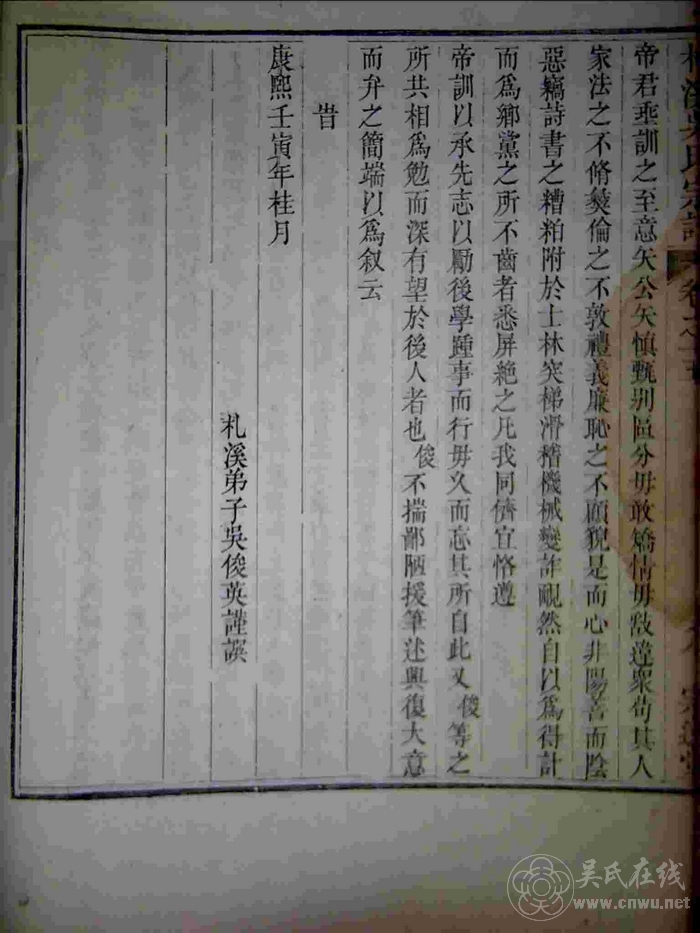 帝君垂訓之至意矢公矢慎甄别區分毋敢矯情毋敢違衆苟其人
家法之不脩彛倫之不敦禮義廉恥之不顧貌是而心非陽善而陰
惡竊詩書之糟粕附於士林突梯滑稽機械變詐靦然自以爲得計
而爲鄉黨之所不齒者悉屏絶之凡我同儕宜恪遵
帝訓以承先志以勵後學踵事而行毋久而忘其所自此又俊等之
所共相爲勉而深有望於後人者也俊不揣鄙陋援筆述興復大意
而弁之簡端以爲叙云
旹
康熙壬寅年桂月
札溪弟子吳俊英謹譔
吴氏在线
www.cnwu.net